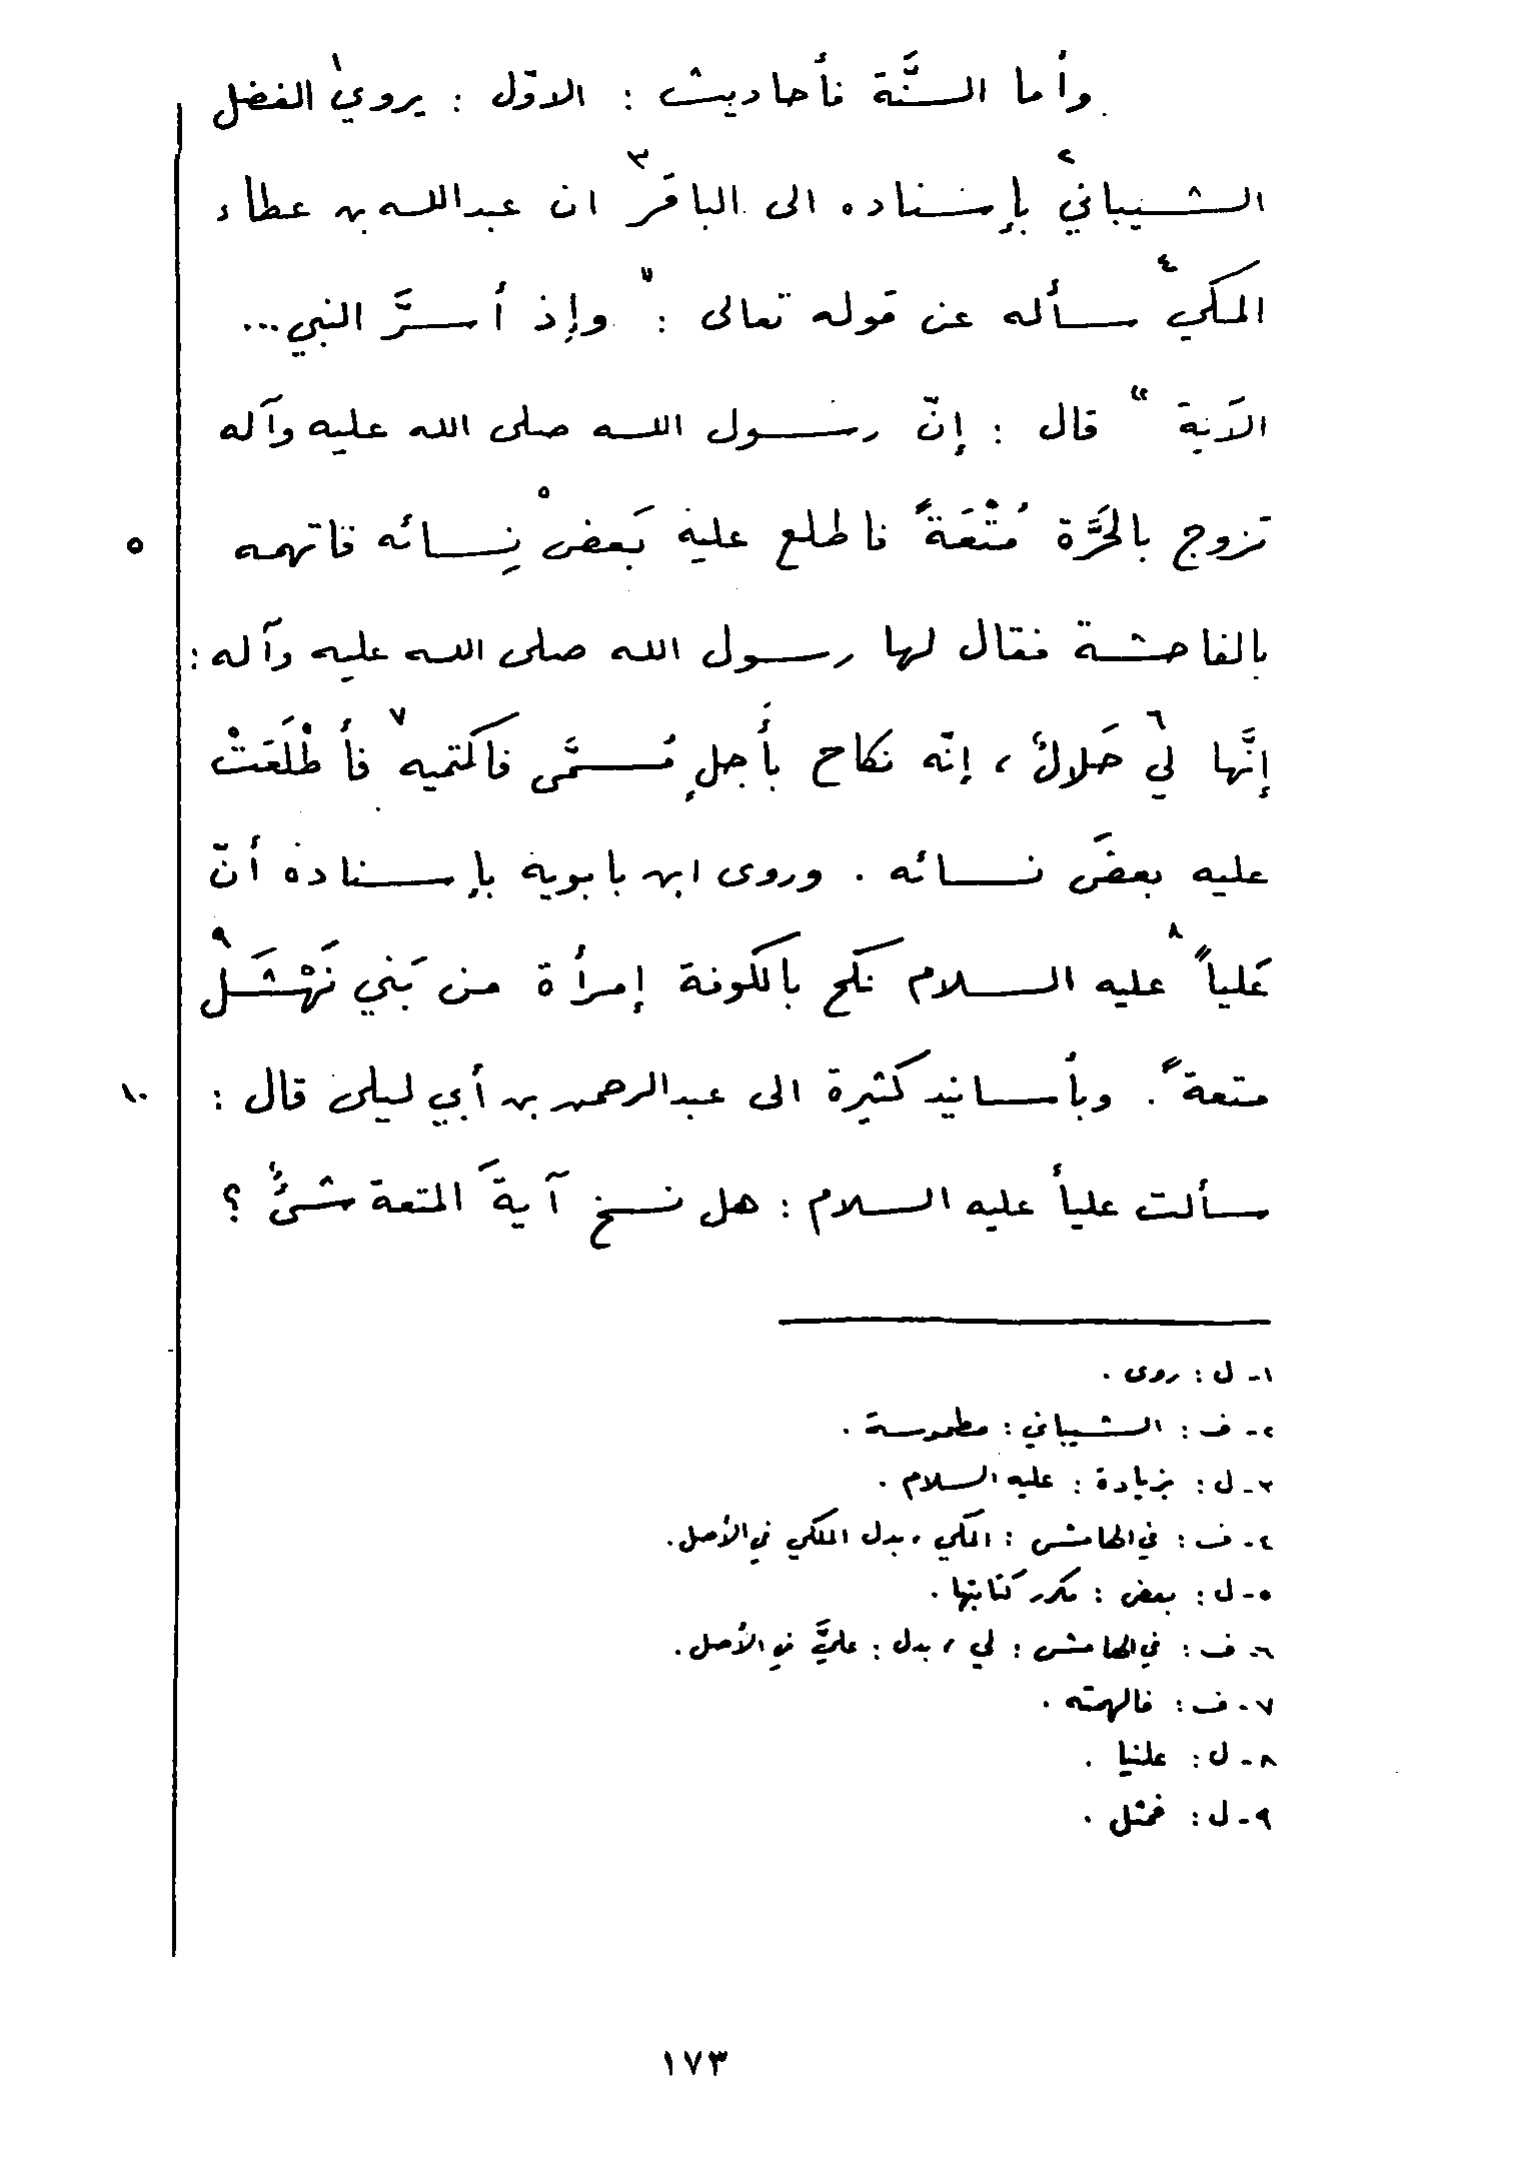 وأما السنَّة فأحاديث : الاوّل : يروي١ الفضل
الشيباني٢ بإسناده الى الباقر٣ ان عبدالله بن عطاء
المكي٤ سأله عن قوله تعالى : " وإذ أسرَّ النبي ...
الآية " قال : إنّ رسول الله صلى الله عليه وآله
تزوج بالحَرَّة مُتْعَةً فاطلع عليه بَعض٥ نِسائه فاتهمه
٥
بالفاحشة فقال لها رسول الله صلى الله عليه وآله :
إنَّها لي٦ حَلالٌ ، إنّه نكاح بأَجلٍ مُسمَّى فاكتميه٧ فأطْلَعَتْ
عليه بعضَ نسائه . وروى ابن بابويه بإسناده أنّ
عَلياً٨ عليه السلام نَكح بالكوفة إمرأة من بَني نَهْشَل٩
متعةً . وبأسانيد كثيرة الى عبدالرحمن بن أبي ليلى قال :
١٠
سألت علياً عليه السلام : هل نسخ آيةَ المتعة شئٌ ؟
١ـ ل : روى .
٢ـ ف : الشيباني : مطموسة .
٣ـ ل : بزيادة : عليه السلام .
٤ـ ف : في الهامش : المكي ، بدل الملكي في الأصل .
٥ـ ل : بعض : مكرر كتابتها .
٦ـ ف : في الهامش : لي ، بدل : عليَّ في الأصل .
٧ـ ف : فالهمته .
٨ـ ل : علنيا .
٩ـ ل : فمثل .
١٧٣